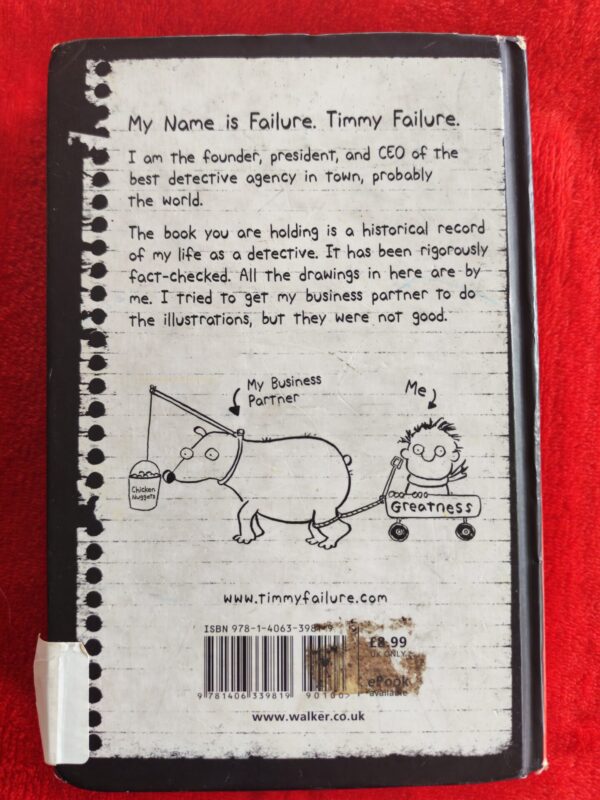 My Name is Failure. Timmy Failure.
I am the founder, president, and CEO of the
best detective agency in town, probably
the world.
The book you are holding is a historical record
of my life as a detective. It has been rigorously
fact-checked. All the drawings in here are by
me. I tried to get my business partner to do
the illustrations, but they were not good.
My Business
Partner
Me
Chicken
Nuggets
Greatness
www.timmyfailure.com
ISBN 978-1-4063-3981-9
£8.99
UK ONLY
eBook
available
9 781406 339819
www.walker.co.uk